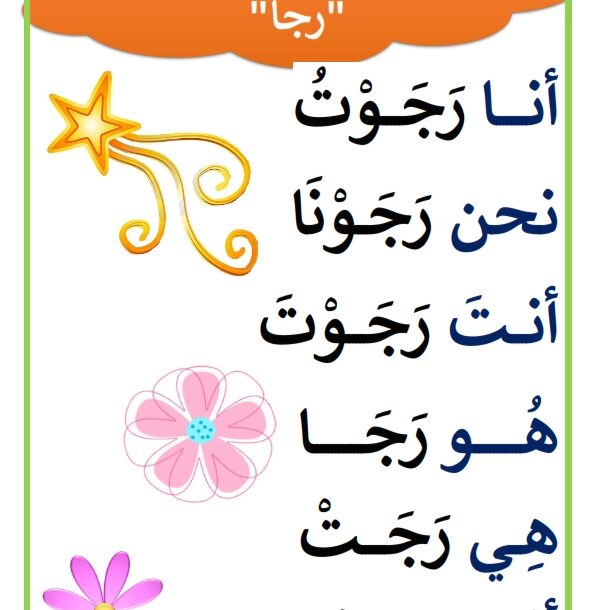 "رجا"
أنــا رَجَــوْتُ
نحن رَجَـوْنَا
أنـتَ رَجَــوْتَ
هُـــو رَجَـــا
هِي رَجَــتْ